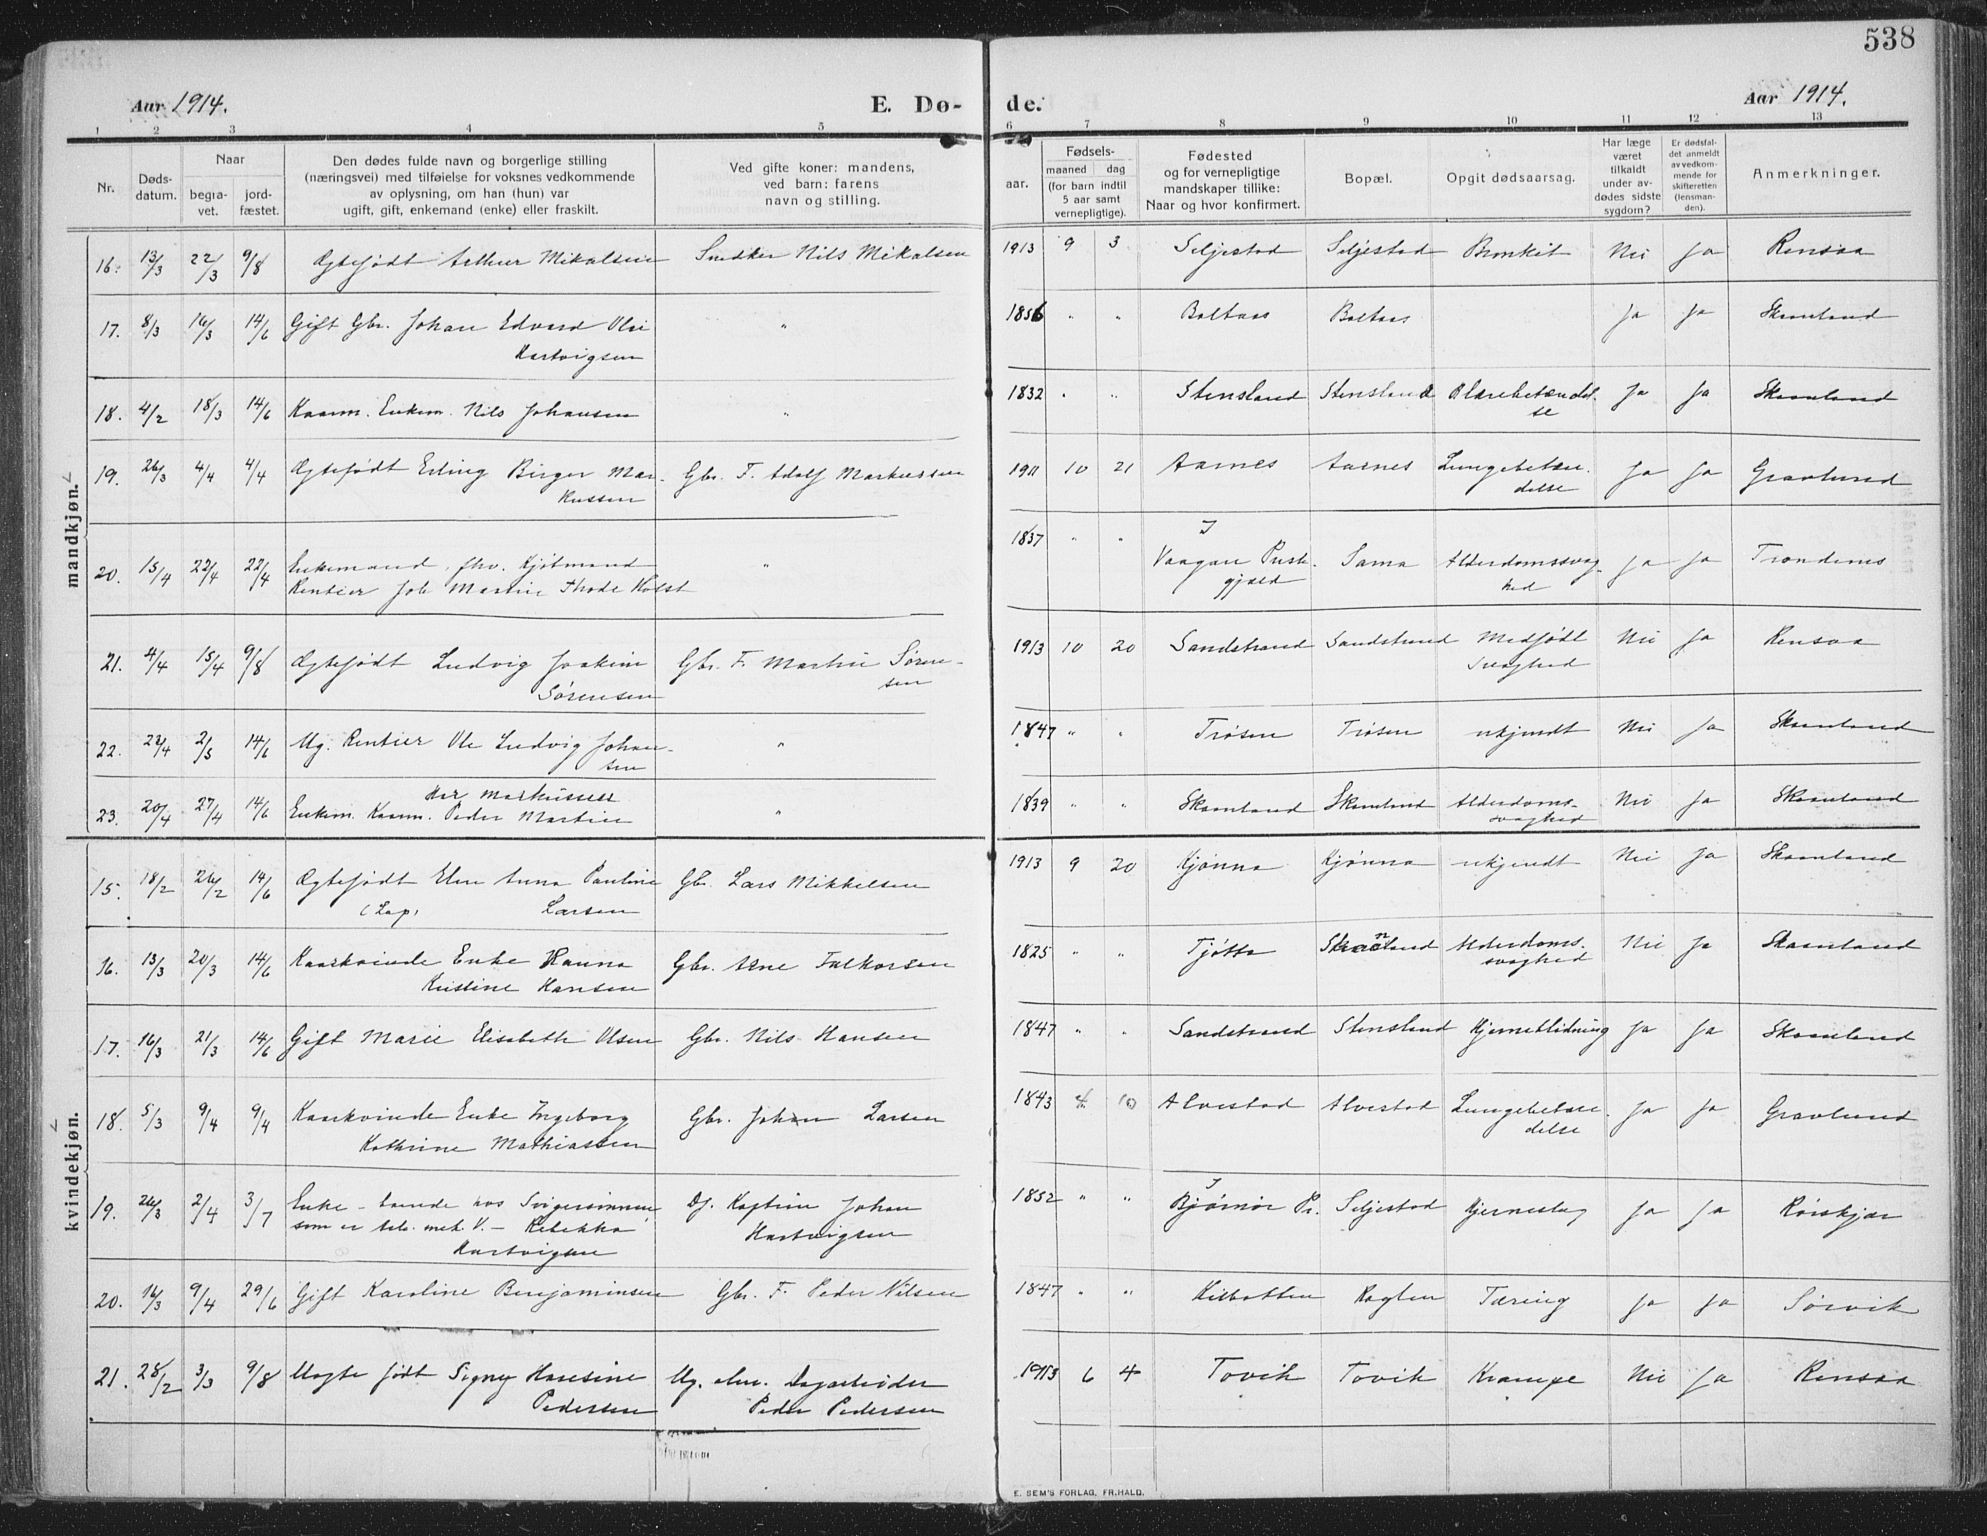 538
Aar 1914.
E. Dø-
de.
Aar 1914.
1 2 3 4 5 6 7 8 9 10 11 12 13
Nr.
Døds-
datum.
Naar
begra-
vet.
jord-
fæstet.
Den dødes fulde navn og borgerlige stilling
(næringsvei) med tilføielse for voksnes vedkommende
av oplysning, om han (hun) var
ugift, gift, enkemand (enke) eller fraskilt.
Ved gifte koner: mandens,
ved barn: farens
navn og stilling.
Fødsels-
aar.
maaned dag
(for barn indtil
5 aar samt
vernepligtige).
Fødested
og for vernepligtige
mandskaper tillike:
Naar og hvor konfirmert.
Bopæl.
Opgit dødsaarsag.
Har læge
været
tilkaldt
under av-
dødes sidste
sygdom?
Er dødsfal-
det anmeldt
av vedkom-
mende for
skifteretten
(lensman-
den).
Anmerkninger.
mandkjøn.
16. 13/3 22/3 9/8 Ægtefødt Arthur Mikalsen Snedker Nils Mikalsen 1913 9 3 Seljestad Seljestad Bronkit Nei Ja Rensaa
17. 8/3 16/3 14/6 Gift Gbr. Johan Edvard Olai " 1856 " " Boltaas Boltaas Ja Ja Skaanland
Hartvigsen
18. 4/2 18/3 14/6 Kaarm. Enkem. Nils Johansen " 1832 " " Stensland Stensland Blærebetændel- Ja Ja Skaanland
se
19. 26/3 4/4 4/4 Ægtefødt Erling Birger Mar- Gbr. F. Adolf Markussen 1911 10 21 Aarnes Aarnes Lungebetæn- Ja Ja Gravlund
kussen delse
20. 15/4 22/4 22/4 Enkemand, fhv. Kjøbmand " 1837 " " I
Vaagan Preste- Sama Alderdomssvag- Ja Ja Trondenes
Rentier Job Martin Thode Holst gjæld hed
21. 4/4 15/4 9/8 Ægtefødt Ludvig Joakim Gbr. F. Martin Søren- 1913 10 20 Sandstrand Sandstrand Medfødt Nei Ja Rensaa
Sørensen sen svaghed
22. 22/4 2/5 14/6 Ug. Rentier Ole Ludvig Johan- " 1847 " " Trøsen Trøsen ukjendt Nei Ja Skaanland
sen
23. 20/4 27/4 14/6 Enkem. Kaarm. Peder Martin " 1839 " " Skaanland Skaanland Alderdoms- Nei Ja Skaanland
Markussen svaghed
kvindekjøn.
15. 18/2 26/2 14/6 Ægtefødt Elen Anna Pauline Gbr. Lars Mikkelsen 1913 9 20 Kjønna Kjønna ukjendt Nei Ja Skaanland
(Lap) Larsen
16. 13/3 20/3 14/6 Kaarkvinde Enke Hanna Gbr. Arne Falkorsen 1825 " " Tjøtta Skaanland Alderdoms- Nei Ja Skaanland
Kristine Hansen svaghed
17. 16/3 21/3 14/6 Gift Marie Elisabeth Olsen Gbr. Nils Hansen 1847 " " Sandstrand Stensland Hjerneblødning Ja Ja Skaanland
18. 5/3 9/4 9/4 Kaarkvinde Enke Ingeborg Gbr. Johan Larsen 1843 10 Alvestad Alvestad Lungebetæn- Ja Ja Gravlund
Kathrine Mathiassen delse
19. 26/3 2/4 3/7 Enke - boende hos Svigersønnen Df. Kaptein Johan 1832 " " I
Bjørnør Pr. Seljestad Hjerneslag Ja Ja Rørskjær
som er tel. met. V. - Rebekka Hartvigsen
Hartvigsen
20. 16/3 9/4 29/6 Gift Karoline Benjaminsen Gbr. F. Peder Nilsen 1847 " " Kilbotten Røglen Tæring Ja Ja Sørvik
21. 28/2 3/3 9/8 Uægte født Signy Hansine Ug. Dagarbeider 1913 6 4 Tovik Tovik Krampe Nei Ja Rensaa
Pedersen Peder Pedersen
E. SEM'S FORLAG, FR.HALD.